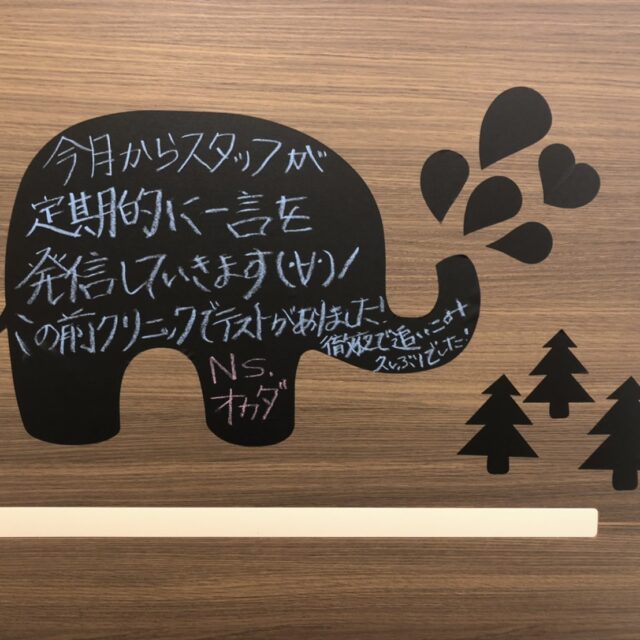 今月からスタッフが
定期的に一言を
発信していきます(・∀・)ノ
この前クリニックでテストがありました!
徹夜で追いこみ
久しぶりでした!
Ns.
オカダ